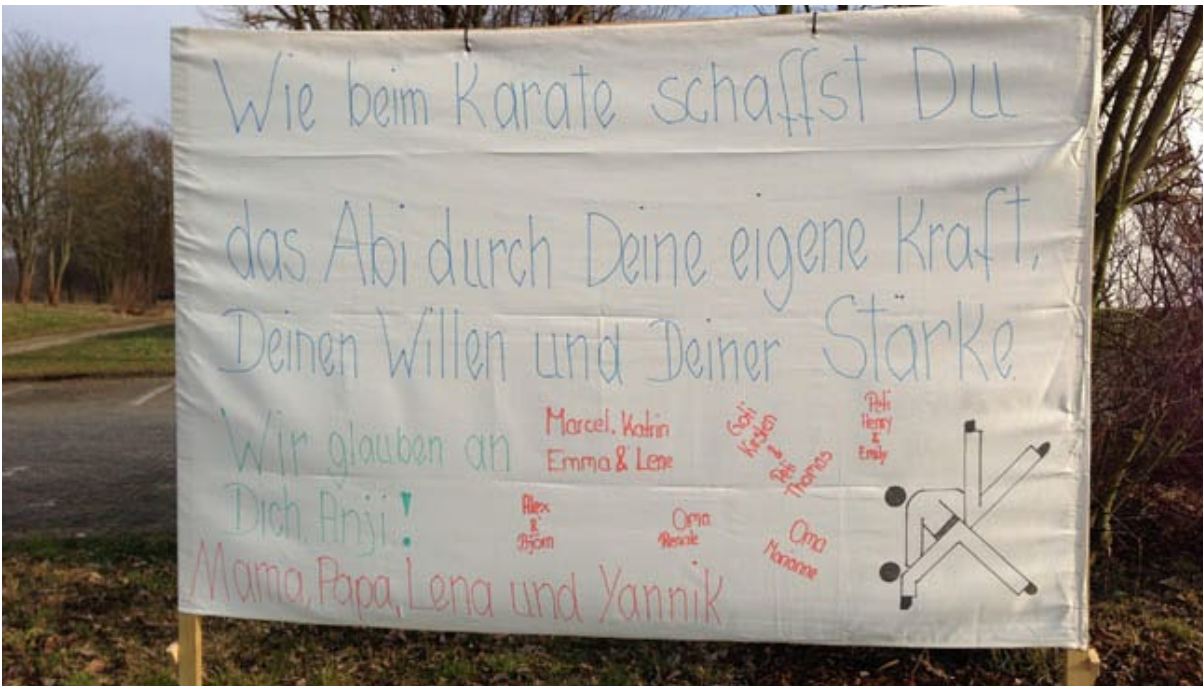 Wie beim Karate schaffst Du
das Abi durch Deine eigene Kraft,
Deinen Willen und Deiner Stärke.
Wir glauben an
Dich, Anji!
Marcel, Katrin
Emma & Lene
Goti
Kirsten
&
Peti
Thomas
Peti
Henry
&
Emily
Alex
&
Björn
Oma
Renate
Oma
Marianne
Mama, Papa, Lena und Yannik